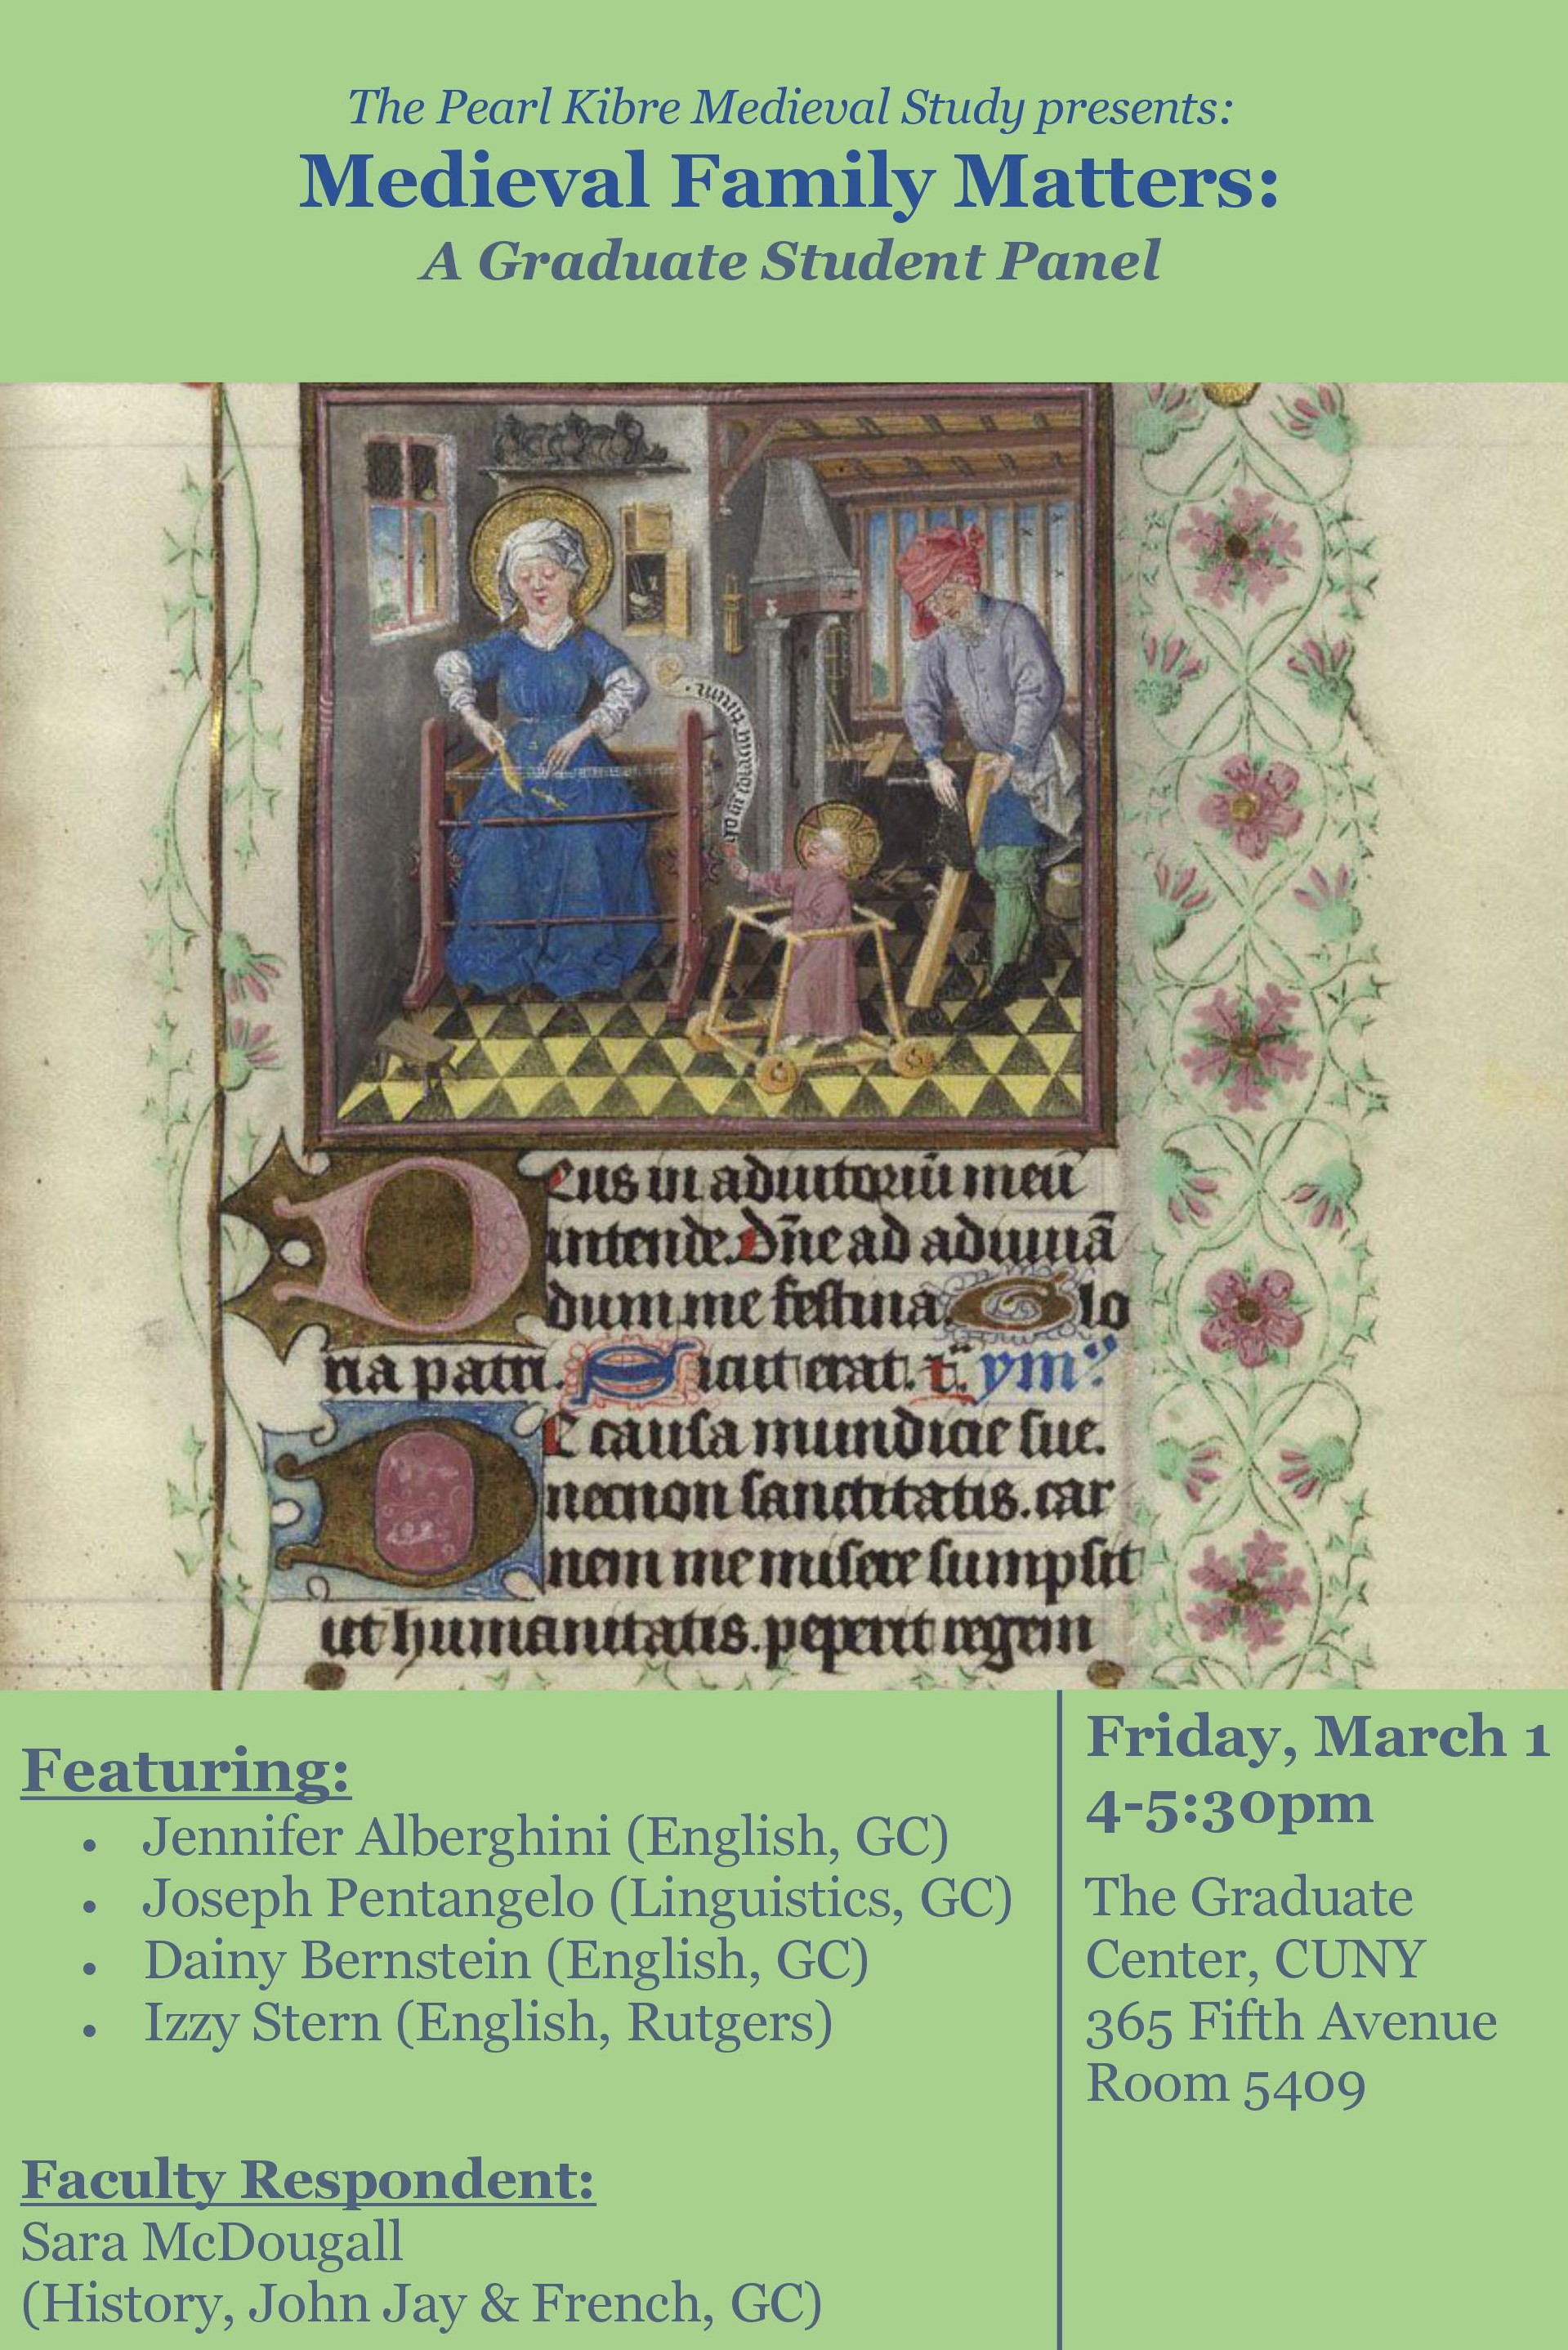 The Pearl Kibre Medieval Study presents:
Medieval Family Matters:
A Graduate Student Panel
Deus in adiutoriū meū
intende. Dn̄e ad adiuuā
dum me festina. Glo
ria patri. Sicut erat.
De causa mundicie sue.
necnon sanctitatis. car
nem me misere sumpsit
ut humanitatis. peperit regem
Featuring:
• Jennifer Alberghini (English, GC)
• Joseph Pentangelo (Linguistics, GC)
• Dainy Bernstein (English, GC)
• Izzy Stern (English, Rutgers)
Faculty Respondent:
Sara McDougall
(History, John Jay & French, GC)
Friday, March 1
4-5:30pm
The Graduate
Center, CUNY
365 Fifth Avenue
Room 5409